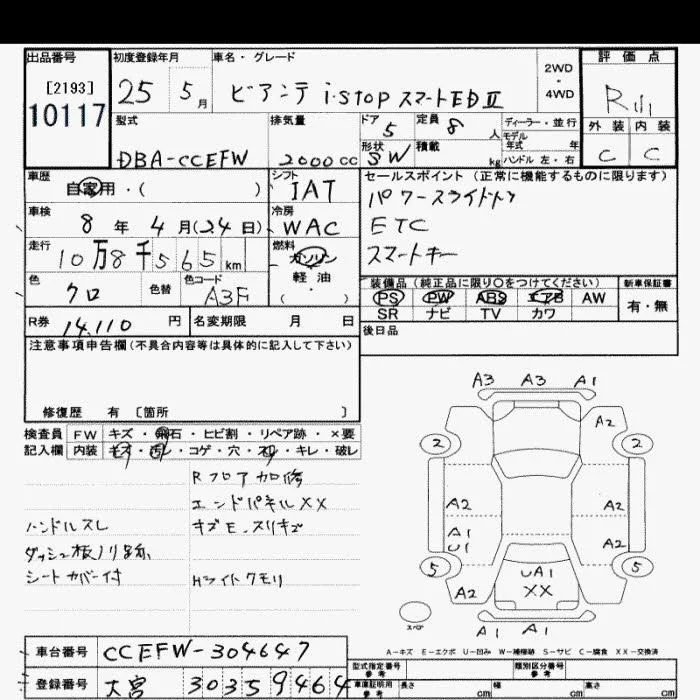 出品番号
[2193]
10117
初度登録年月
25 5 月
車名・グレード
ビアンテ i-STOP スマートED II
2WD
・
4WD
評価点
外装 内装
C C
型式
DBA-CCEFW
排気量
2000 cc
ドア 5
形状 SW
定員 8 人
積載 kg
ディーラー・並行
モデル
年式 年
ハンドル 左・右
車歴
自家用・( )
シフト
IAT
セールスポイント (正常に機能するものに限ります)
パワースライドドア
ETC
スマートキー
車検
8 年 4 月 (24 日)
冷房
WAC
走行
10万8千565 km
燃料
ガソリン
軽油
( ・ )
色
クロ
色替
色コード
A3F
装備品 (純正品に限り○をつけてください)
PS PW ABS エアB AW
SR ナビ TV カワ
新車保証書
有・無
R券 14,110 円
名変期限 月 日
後日品
注意事項申告欄 (不具合内容等は具体的に記入して下さい)
修復歴 有 〔箇所 〕
検査員
記入欄
FW キズ・飛石・ヒビ割・リペア跡・×要
内装 キズ・汚レ・コゲ・穴・スリ・キレ・破レ
Rフロア加修
エンドパネルXX
ハンドルスレ
キズモ・スリキズ
ダッシュ板ノリ跡
シートカバー付
Hライトクモリ
A3 A3 A1
A2
2 2
A2 A2
A1
U1
A2
5 5
UA1
XX
A2 A2
スペア
A1 A1
A-キズ E-エクボ U-凹み W-補修跡 S-サビ C-腐食 XX-交換済
車台番号 CCEFW-304647
登録番号 大宮 303 59464
型式指定番号
参考
類別区分番号
参考
車庫証明用
参考
長さ cm 幅 cm 高さ cm